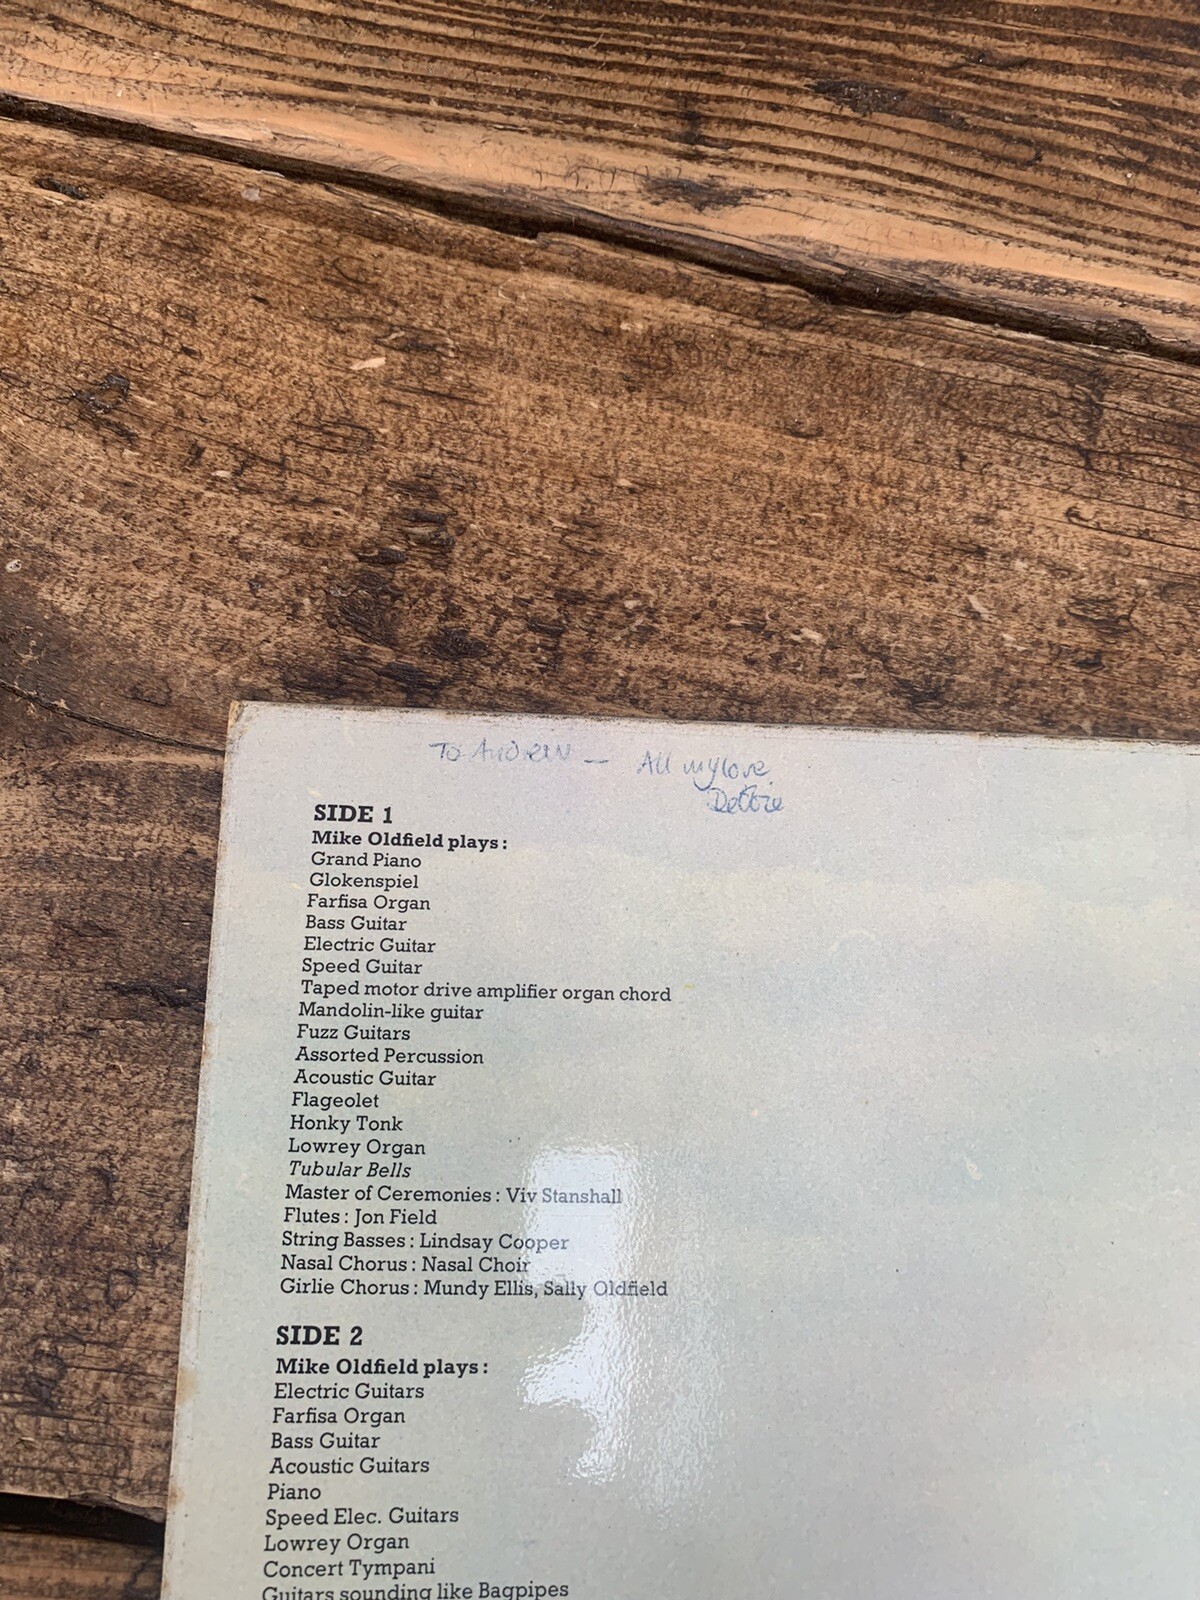 To Andrew — All my love
Debbie
SIDE 1
Mike Oldfield plays:
Grand Piano
Glokenspiel
Farfisa Organ
Bass Guitar
Electric Guitar
Speed Guitar
Taped motor drive amplifier organ chord
Mandolin-like guitar
Fuzz Guitars
Assorted Percussion
Acoustic Guitar
Flageolet
Honky Tonk
Lowrey Organ
Tubular Bells
Master of Ceremonies: Viv Stanshall
Flutes: Jon Field
String Basses: Lindsay Cooper
Nasal Chorus: Nasal Choir
Girlie Chorus: Mundy Ellis, Sally Oldfield
SIDE 2
Mike Oldfield plays:
Electric Guitars
Farfisa Organ
Bass Guitar
Acoustic Guitars
Piano
Speed Elec. Guitars
Lowrey Organ
Concert Tympani
Guitars sounding like Bagpipes